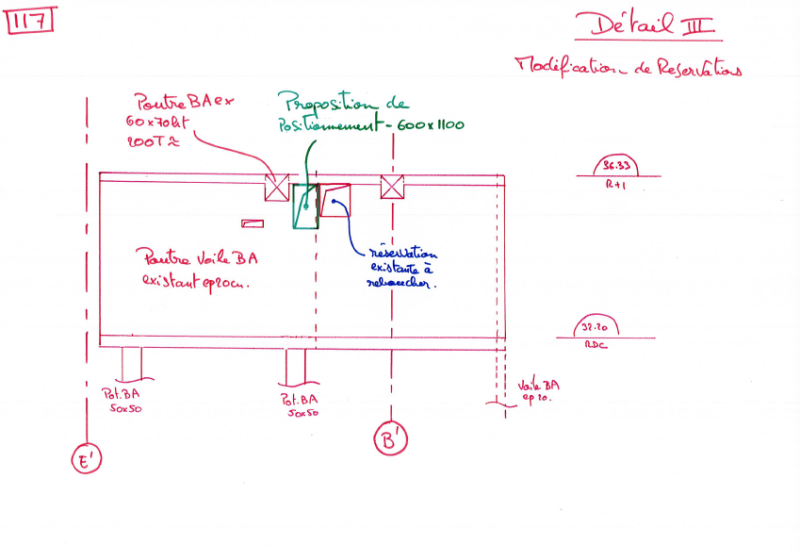 117
Détail III
Modification de Reservations
Poutre BA ex
60x70ht
200T≈
Proposition de
Positionnement - 600x1100
36.33
R+1
Poutre Voile BA
existant ep20cm.
réservation
existante à
reboucher.
32.20
RDC
Pot.BA
50x50
Pot.BA
50x50
Voile BA
ep 20.
E'
B'